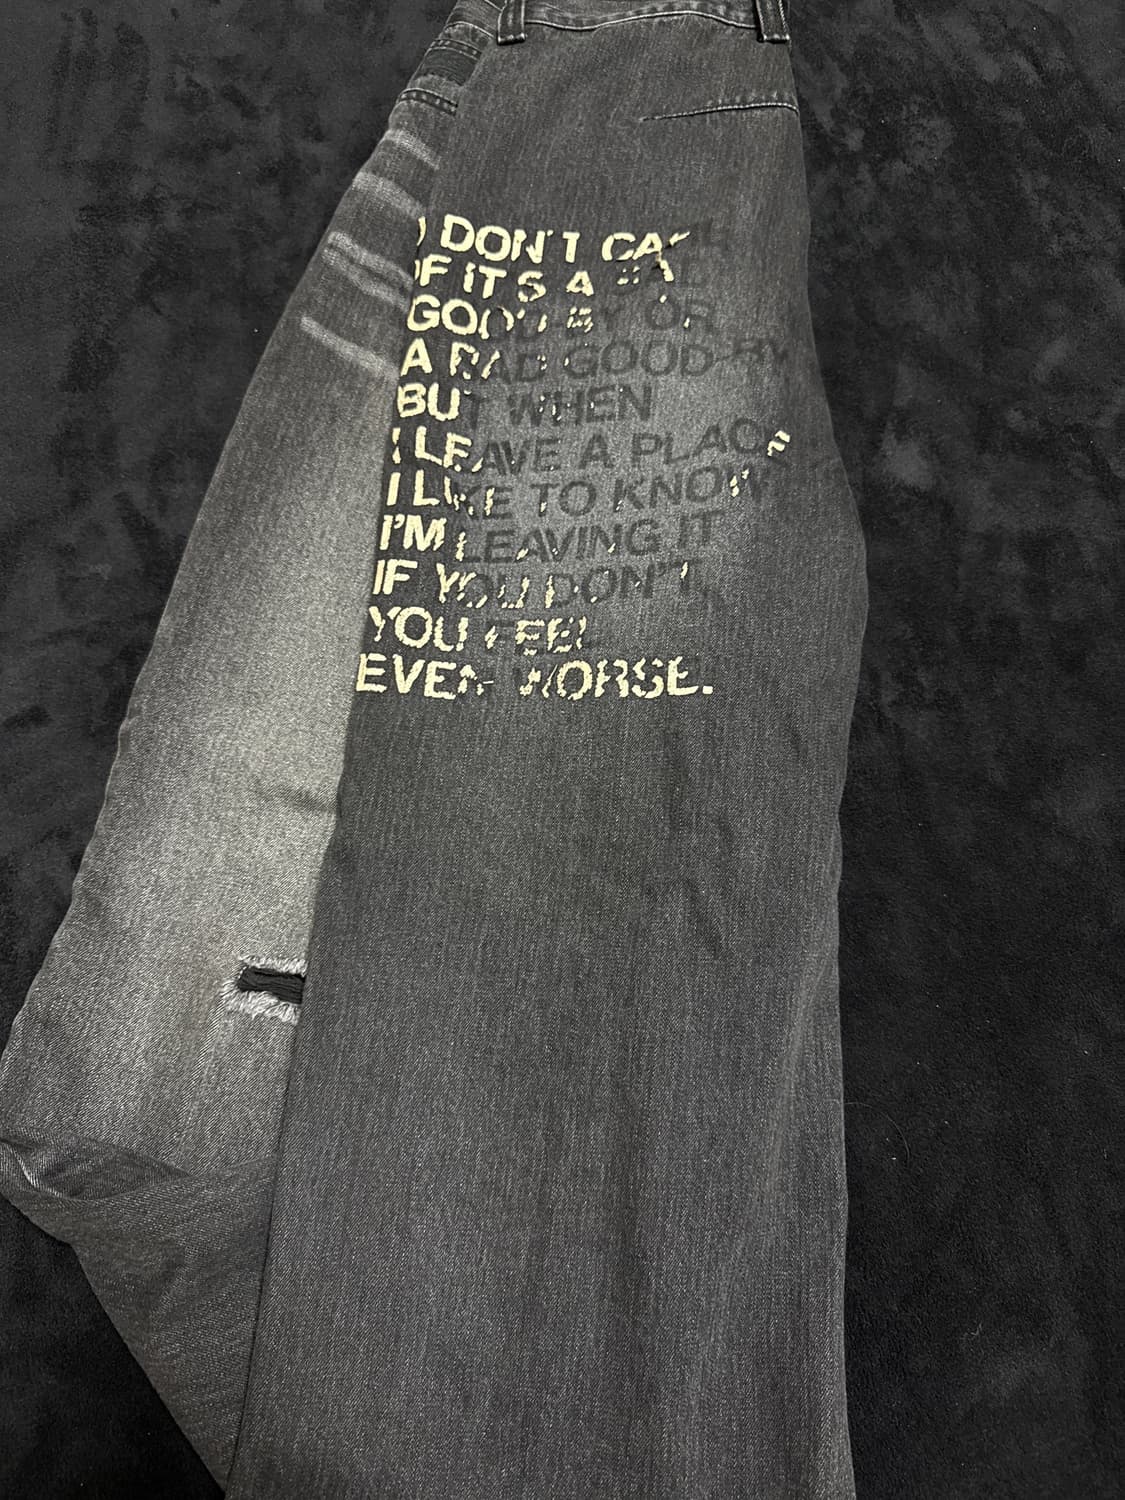 I DON'T CARE
IF IT'S A SAD
GOOD-BY OR
A BAD GOOD-BY
BUT WHEN
I LEAVE A PLACE
I LIKE TO KNOW
I'M LEAVING IT
IF YOU DON'T,
YOU FEEL
EVEN WORSE.